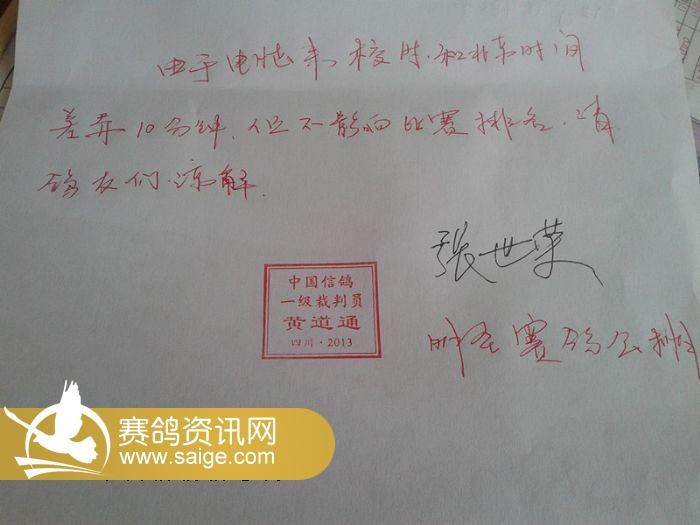 由于电脑未校时.和北京时间
差异10分钟.但不影响比赛排名.请
鸽友们.谅解.
張世荣
中国信鸽
一级裁判员
黄道通
四川·2013
赛鸽公棚
赛鸽资讯网
www.saige.com